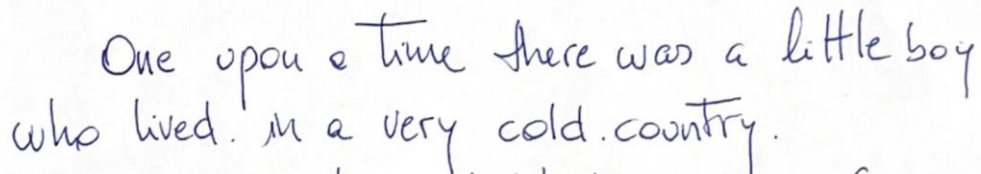 One upon a time there was a little boy
who lived. in a very cold. country.